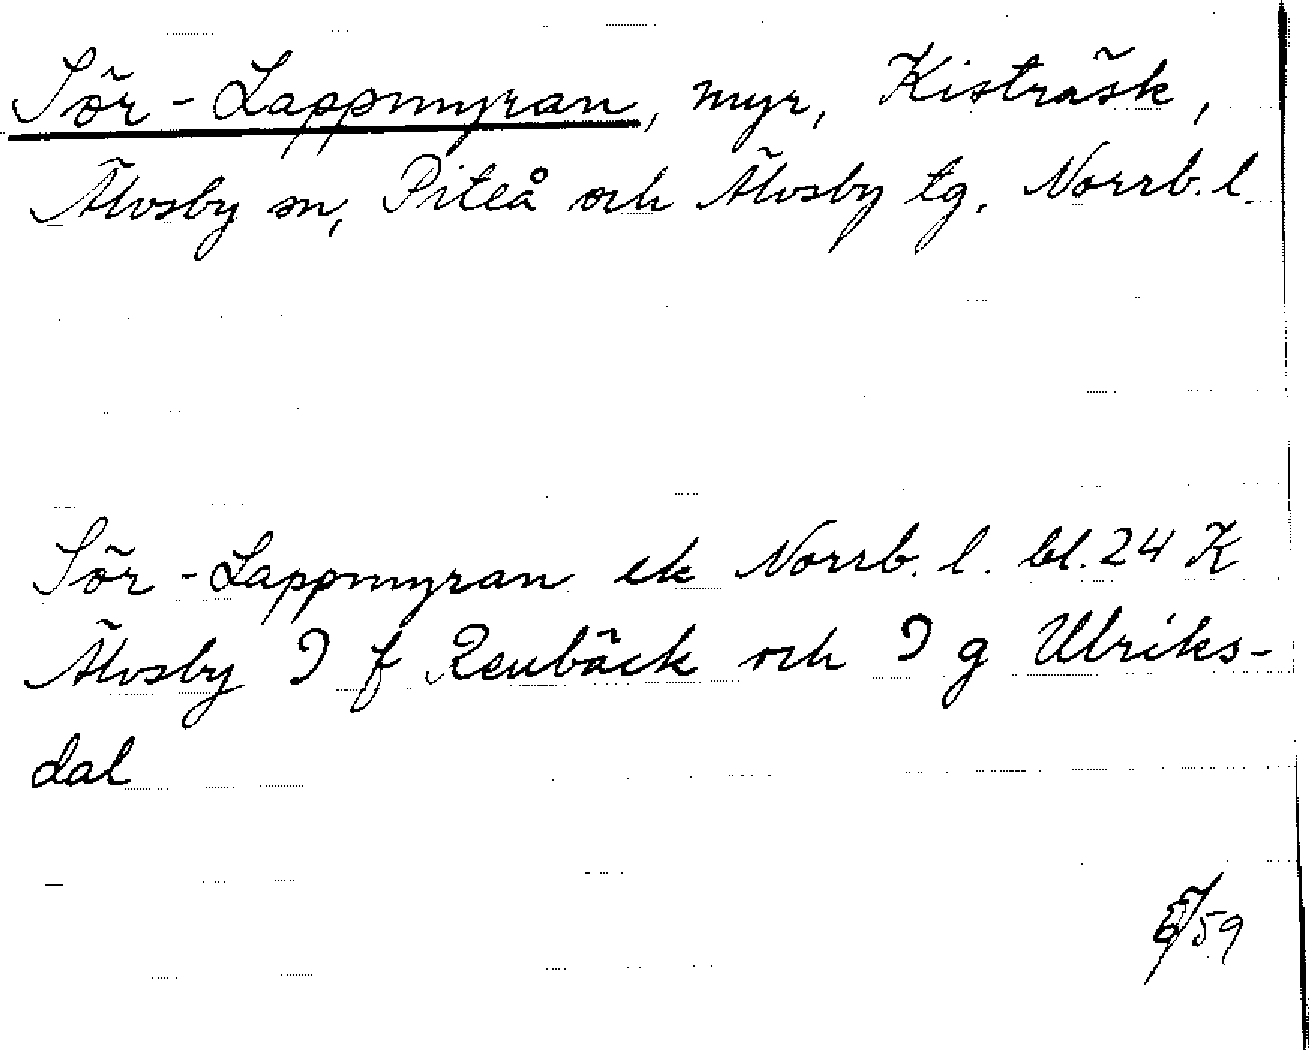 Sör-Lappmyran, myr, Kisträsk,
Älvsby sn, Piteå och Älvsby tg. Norrb. l.
Sör-Lappmyran ek Norrb. l. bl. 24 K
Älvsby I f Renbäck och I g Ulriks-
dal
/59